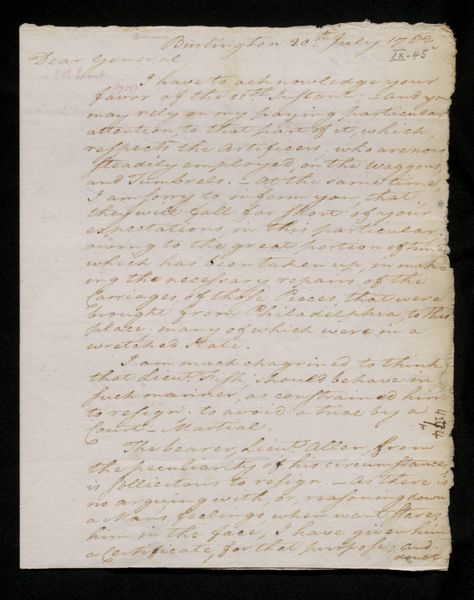 Burlington 20th July 1782
IX-45
Dear General,
I have to acknowledge your
favor of the 11th Instant — and you
may rely on my paying particular
attention to that part of it, which
respects the Artificers, who are now
steadily employed, on the Waggons
and Tumbrels. — At the same time
I am sorry to inform you, that
they will fall far short of your
expectations, in this particular
owing to the great portion of time
which has been taken up, in mak-
ing the necessary repairs of the
Carriages, of those Pieces, that were
brought from Philadelphia, to this
place, many of which were in a
wretched state.
I am much chagrined to think
that Lieut. Fish, should behave in
such manner, as constrained him
to resign, to avoid a trial by a
Court-Martial.
The bearer, Lieut. Allen, from
the peculiarity of his circumstances
is sollicitous to resign. — As there is
no arguing with, or reasoning down
a Man's feelings, when want stares
him in the face, I have given him
a Certificate, for that purpose, and
doubt